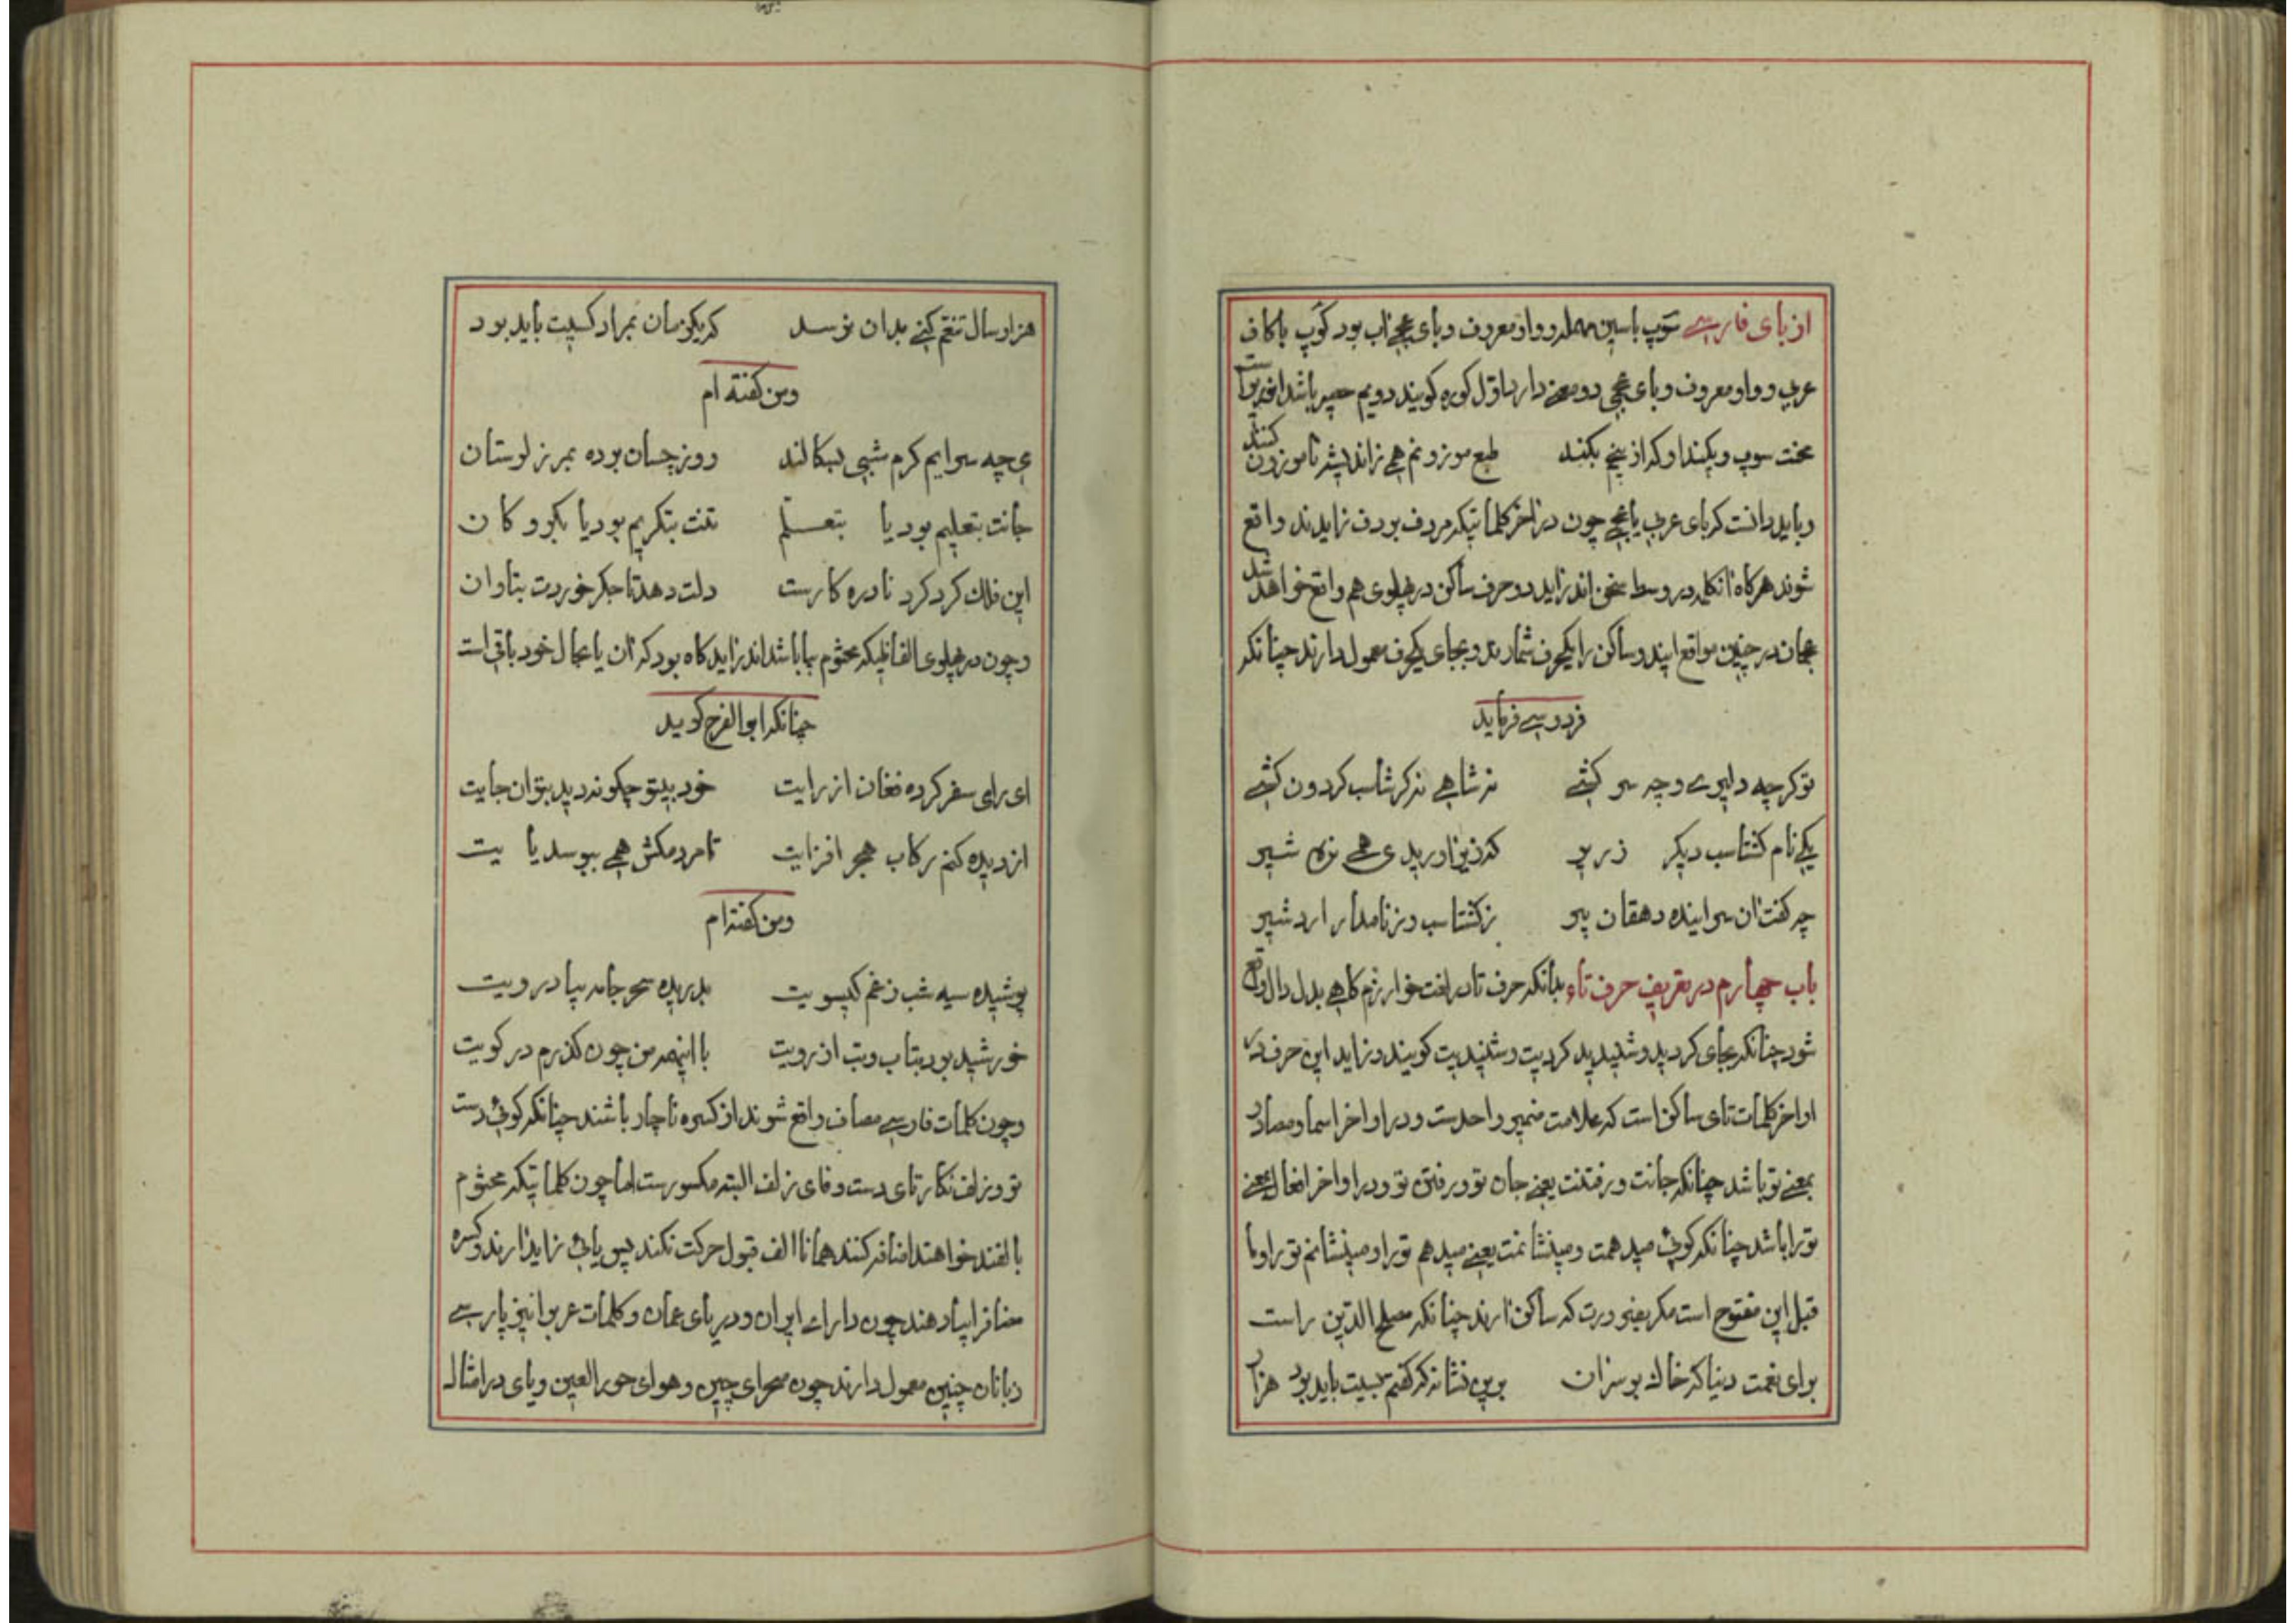 از بای فارسے سوپ باسین مهمله و واو معروف و بای عجمے اب بود کوپ باکاف
عربی و واو معروف و بای عجمی دو معنے دارد اول کوره کویند دویم حصیر باشد
سوپ و بکند او که از بیخ بکند طبع موزونم همے زاند بیشر ناموزون کنند
و باید دانست که بای عربی یا عجمے چون در اخر کلماتیکه مردف بردف زایدند واقع
شوند هرکاه آنکلمه در وسط سخن اند زاید دو حرف ساکن در پهلوی هم واقع خواهد شد
همان در چنین مواقع ایندو ساکن را یکحرف شمارند و بجای یکحرف معمول دارند چنانکه
فردوسے فرماید
توکر چه دلیرے و چه سر کشے نه شاهے نه کرشاسب کردون کشے
یکے نام کشتاسب دیکر زریر که زینا وریدی همے نره شیر
چه کفت آن سراینده دهقان پیر ز کشتاسب وز نامدار اردشیر
باب چهارم در تعریف حرف تاء بدانکه حرف تا در لغت خوارزم کاهے بدل دال واقع
شود چنانکه بجای کردید و شنیدید کردیت و شنیدیت کویند و زاید این حرف در
اواخر کلمات تای ساکن است که علامت ضمیر واحدست و در اواخر اسما و مصادر
بمعنے تو باشد چنانکه جانت و رفتنت یعنے جان تو و رفتن تو و در اواخر افعال بمعنے
تورا باشد چنانکه کوئی میدهمت و مینشانمت یعنے میدهم تورا و مینشانم تورا و ما
قبل این مفتوح است مکر بضرورت که ساکن آرند چنانکه مصلح الدین راست
برای نعمت دنیا که خاک بر سر آن برین نشانه که کفتم نبیت باید بود هزار
هزار سال تنعم کنے بدان نرسد که یکزمان بمراد کسیت باید بود
و من کفته ام
چه سرایم کرم شبی بسکالند روز چسان بوده بمرز لوستان
جانت بتعلیم بود یا بتعلم تنت بتکریم بود یا بکرو کان
این فلک کرد کرد نادره کارست دلت دهد تا جکر خوردت بتاوان
و چون در پهلوی الفاظیکه مختوم بیا باشد اند زاید کاه بود که آن یا بحال خود باقی است
چنانکه ابوالفرج کوید
ای رای سفر کرده فغان از رایت خود بیتو چکونه دید بتوان جایت
از دیده کنم رکاب هجر افزایت تا مردمکش همے ببوسد پایت
و من کفته ام
پوشیده سیه شب ز غم کیسویت بدریده سحر جامه بیاد رویت
خورشید بود بتاب و تب از رویت با اینهمه من چون کذرم در کویت
و چون کلمات فارسے مضاف واقع شوند از کسره ناچار باشند چنانکه کوئی دست
تو و زلف نکار تای دست و فای زلف البته مکسورست اما چون کلماتیکه مختوم
بالفند خواهند اضافه کنند همانا الف قبول حرکت نکند پس یائی زاید آرند و کسره
مضاف را بیا دهند چون داراے ایران و دریای عمان و کلمات عربی را نیز پارسے
زبانان چنین معمول دارند چون صحرای چین و هوای حور العین و یای در امثال